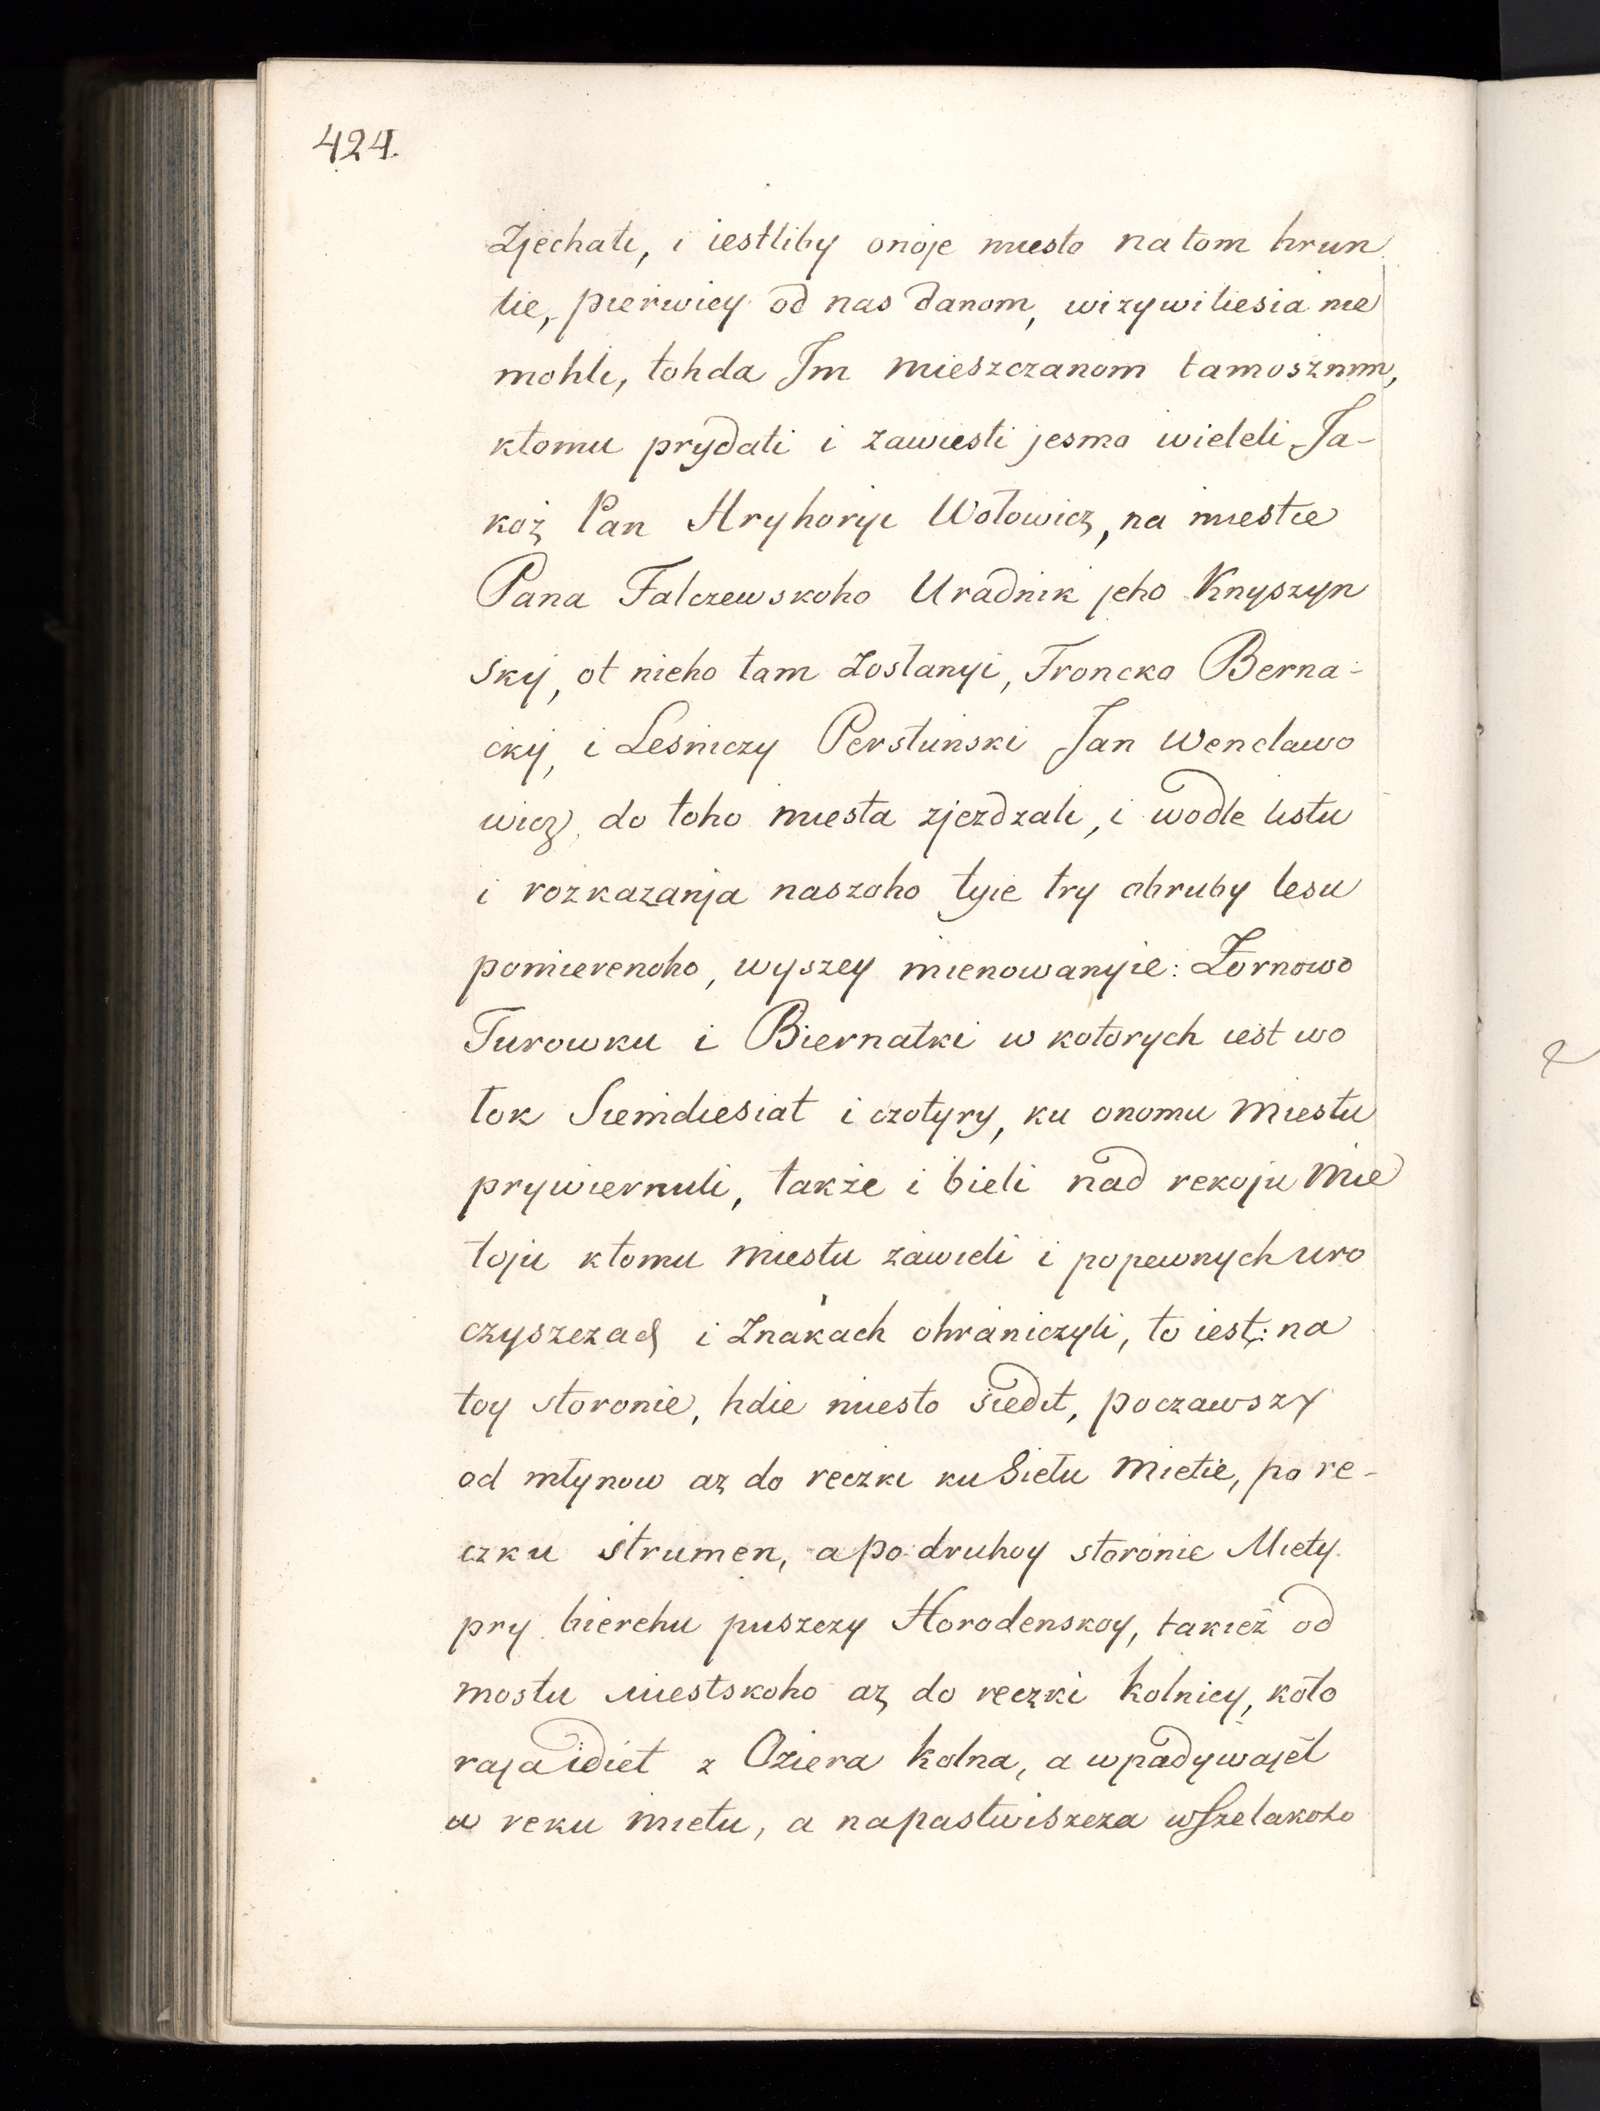 424.
Zjechati, i iestliby onoje miesto natom hrun
tie, pierwiey od nas danom, wizywitiesia nie
mohli, tohda Jm mieszczanom tamosznim,
ktomu prydati i zawiesti jesmo wieleli Ja-
koż Pan Hryhoryi Wołowicz, na miestie
Pana Falczewskoho Uradnik jeho Knyszyn
skij, ot nieho tam zostanyi, Froncko Berna-
ckij, i Lesniczy Perstunski Jan Wencławo
wicz, do toho miesta zjezdzali, i wodle listu
i rozkazanja naszoho tyie try obruby lesu
pomierenoho, wyszey mienowanyie: Żornowo
Turowku i Biernatki w kotorych iest wo
łok Siemdiesiat i czotyry, ku onomu miestu
prywiernuli, także i bieli nad rekoju Mie
toju ktomu miestu zawieli i popewnych uro
czyszczach i znakach ohraniczyli, to iest: na
toy storonie, hdie miesto siedit, poczawszy
od młynow aż do reczki ku Siełu Mietie, po re-
czku strumen, a po druhoy storonie Miety
pry bierehu puszczy Horodenskoy, takież od
mostu miestskoho aż do reczki Kolnicy, koto
raja idiet z Oziera Kolna, a wpadywajet
w reku mietu, a napastwiszcza wszelakoho